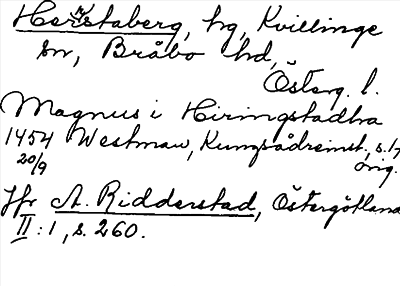 Herrstaberg, hg, Kvillinge
sn, Bråbo hd,
Österg. l.
Magnus i Hiringstadha
1454 Westman, Kungsådreinst, s. 17
20/9 orig.
Jfr A. Ridderstad, Östergötland
II:1, s. 260.